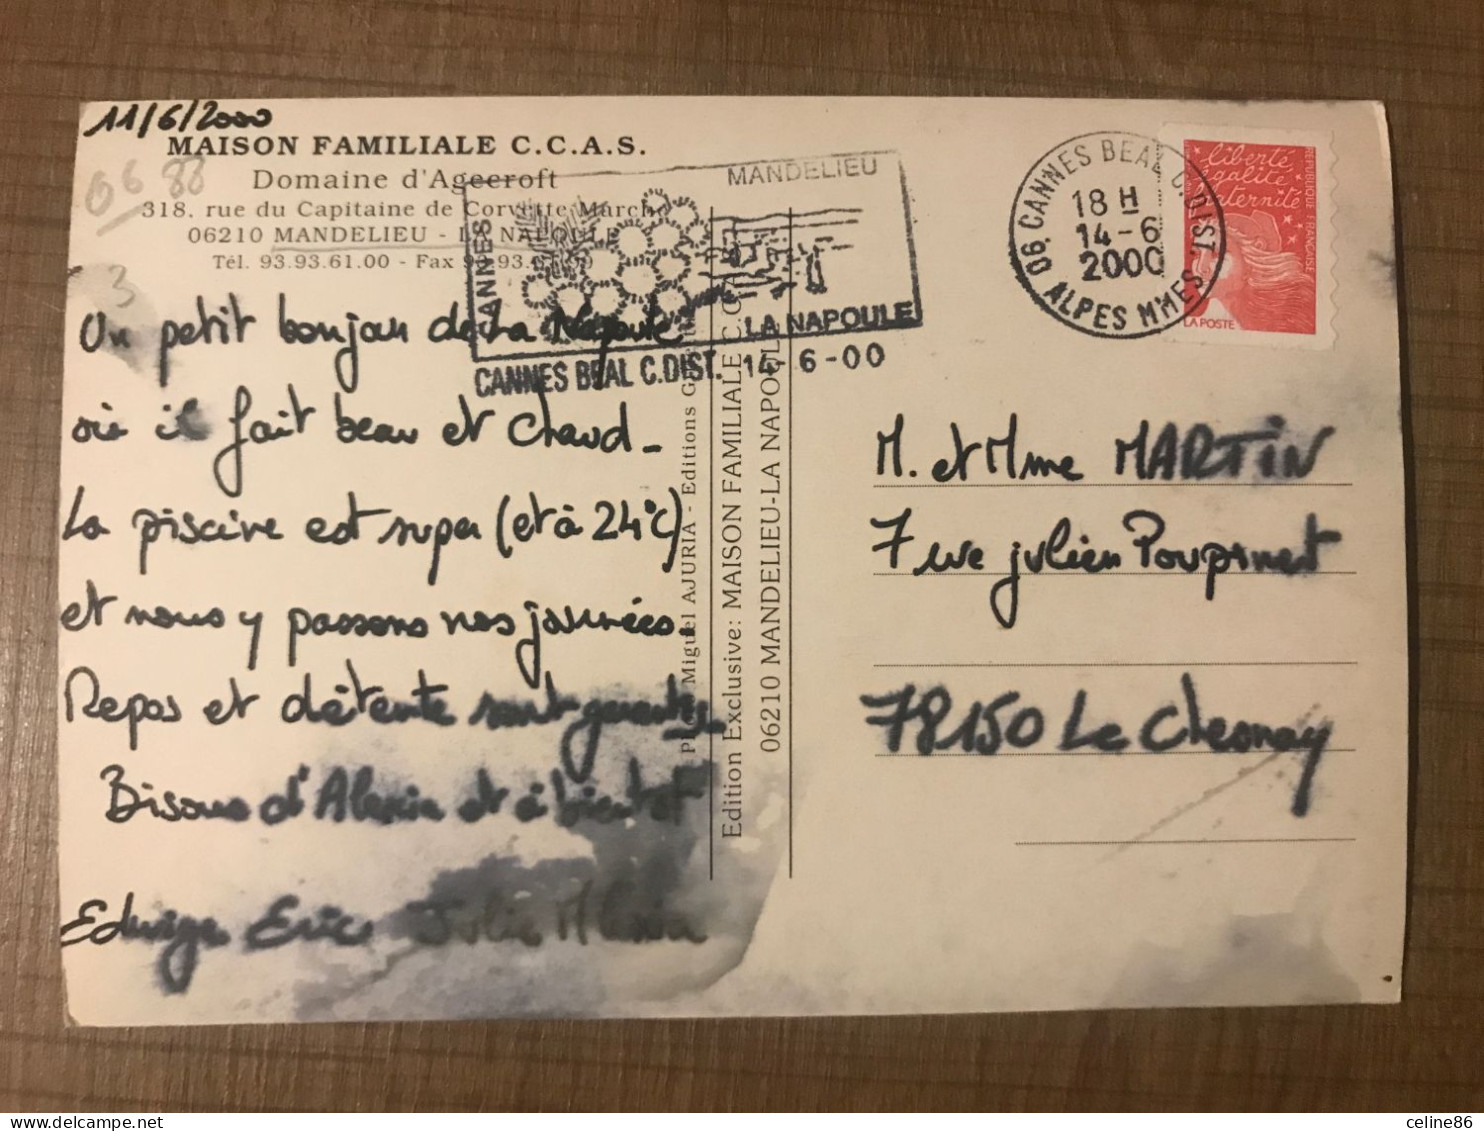 11/6/2000
MAISON FAMILIALE C.C.A.S.
Domaine d'Agecroft
318, rue du Capitaine de Corvette Marché
06210 MANDELIEU - LA NAPOULE
Tél. 93.93.61.00 - Fax
06 88
3
Un petit bonjour de La Napoule
où il fait beau et chaud_
La piscine est super (et à 24°C)
et nous y passons nos journées.
Repos et détente sont garantis
Bisous d'Alexia et à bientôt
Edwige Eric Julie Alexia
CANNES
MANDELIEU
LA NAPOULE
CANNES BEAL C.DIST. 14-6-00
Miguel AJURIA - Editions
Edition Exclusive: MAISON FAMILIALE C.C.
06210 MANDELIEU-LA NAPOULE
06. CANNES BEAL C.DIST.
18 H
14-6
2000
ALPES MMES
liberté
égalité
fraternité
REPUBLIQUE FRANÇAISE
LA POSTE
M. et Mme MARTIN
7 rue julien Poupinet
78150 Le Chesnay
celine86